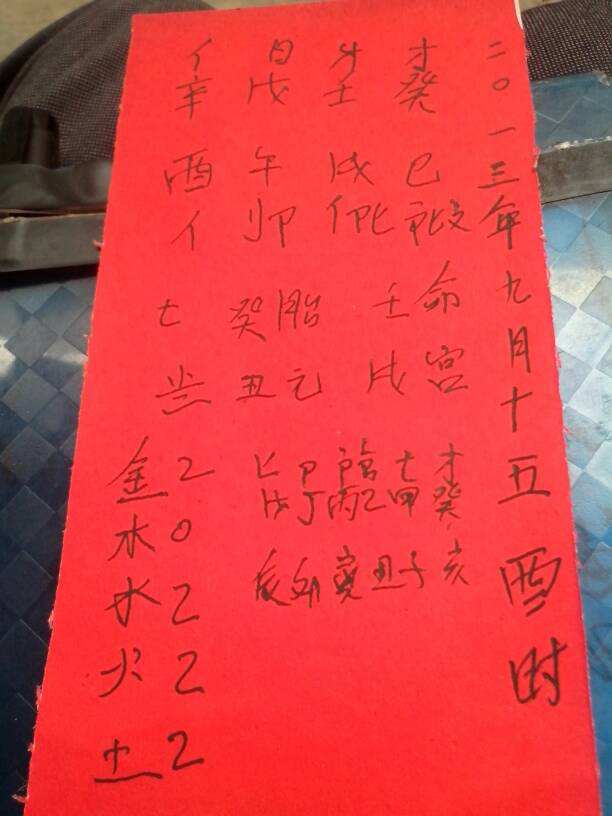 二〇一三年九月十五 酉时
才 日 亻
癸 壬 戊 辛
巳 戌 午 酉
卩 亻
命 壬 胎 癸 七
宫 戌 元 丑
才 七 卩 比
癸 甲 乙 丙 丁 戊
亥 子 丑 寅 卯 辰
金 2
木 0
水 2
火 2
土 2